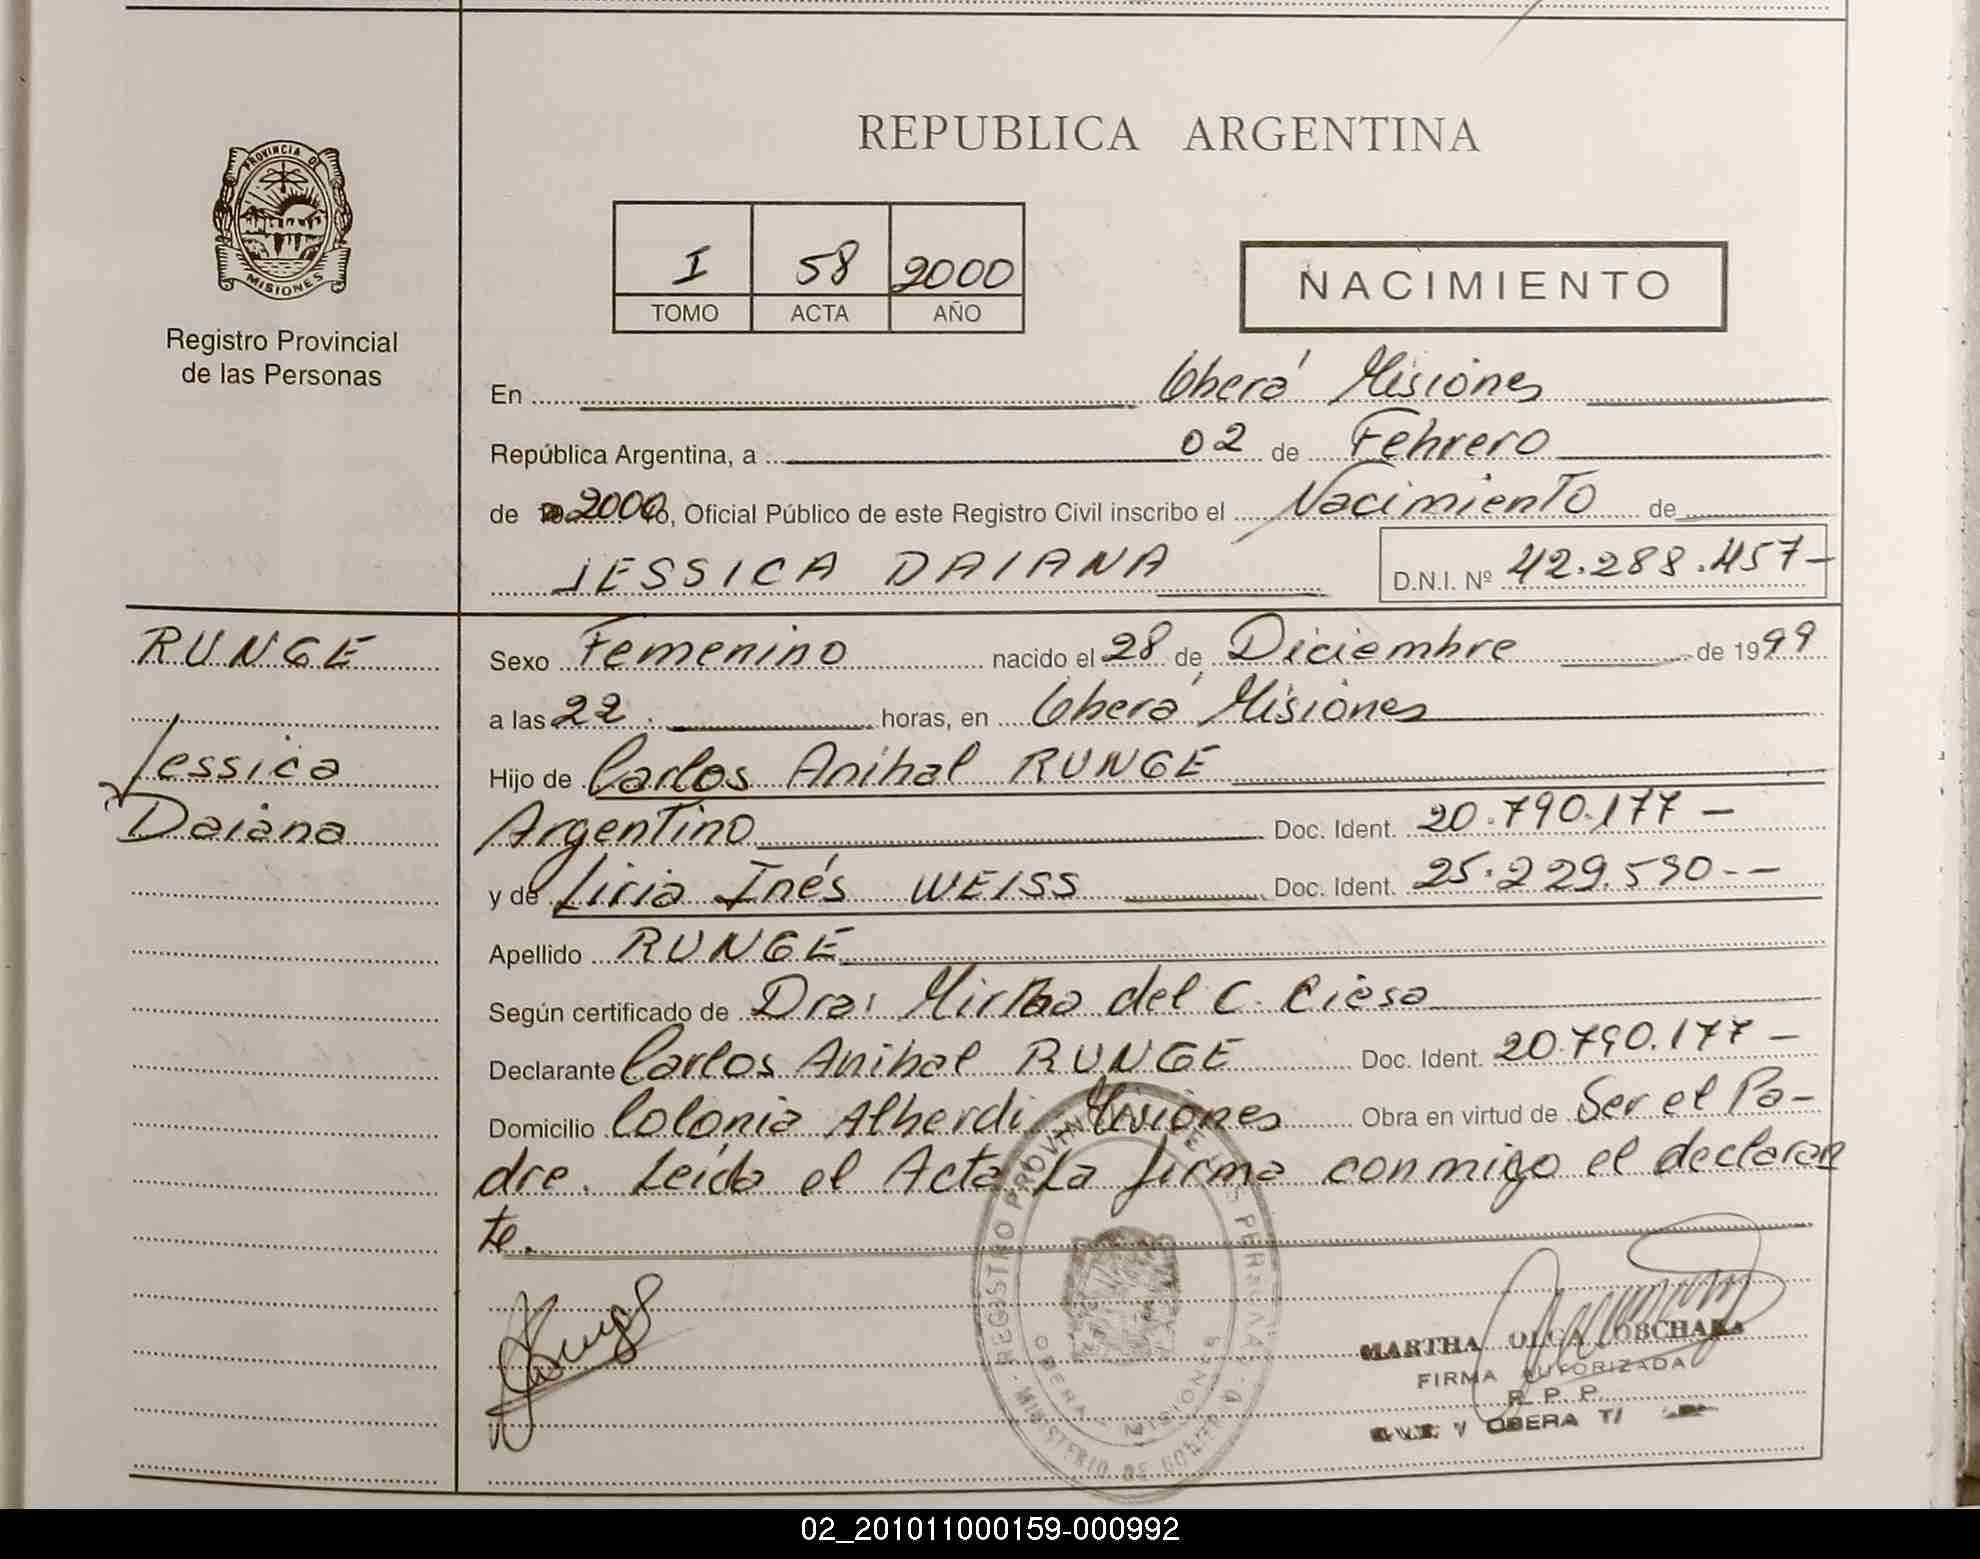 REPUBLICA ARGENTINA
PROVINCIA DE
MISIONES
Registro Provincial
de las Personas
I 58 2000
TOMO ACTA AÑO
NACIMIENTO
En Oberá Misiones
República Argentina, a 02 de Febrero
de 2000, Oficial Público de este Registro Civil inscribo el Nacimiento de
JESSICA DAIANA D.N.I. Nº 42.288.457-
RUNGE
Jessica
Daiana
Sexo Femenino nacido el 28 de Diciembre de 1999
a las 22. horas, en Oberá Misiones
Hijo de Carlos Anibal RUNGE
Argentino Doc. Ident. 20.790.177-
y de Liria Inés WEISS Doc. Ident. 25.229.530--
Apellido RUNGE
Según certificado de Dra: Mirtha del C. Ciesa
Declarante Carlos Anibal RUNGE Doc. Ident. 20.790.177-
Domicilio Colonia Alberdi Misiones Obra en virtud de Ser el Pa-
dre. Leída el Acta La firma conmigo el declaran
te.
MARTHA OLGA
FIRMA AUTORIZADA
R. P. P.
OBERA
REGISTRO PROVINCIAL DE LAS PERSONAS
MINISTERIO DE GOBIERNO
OBERA MISIONES
02_201011000159-000992